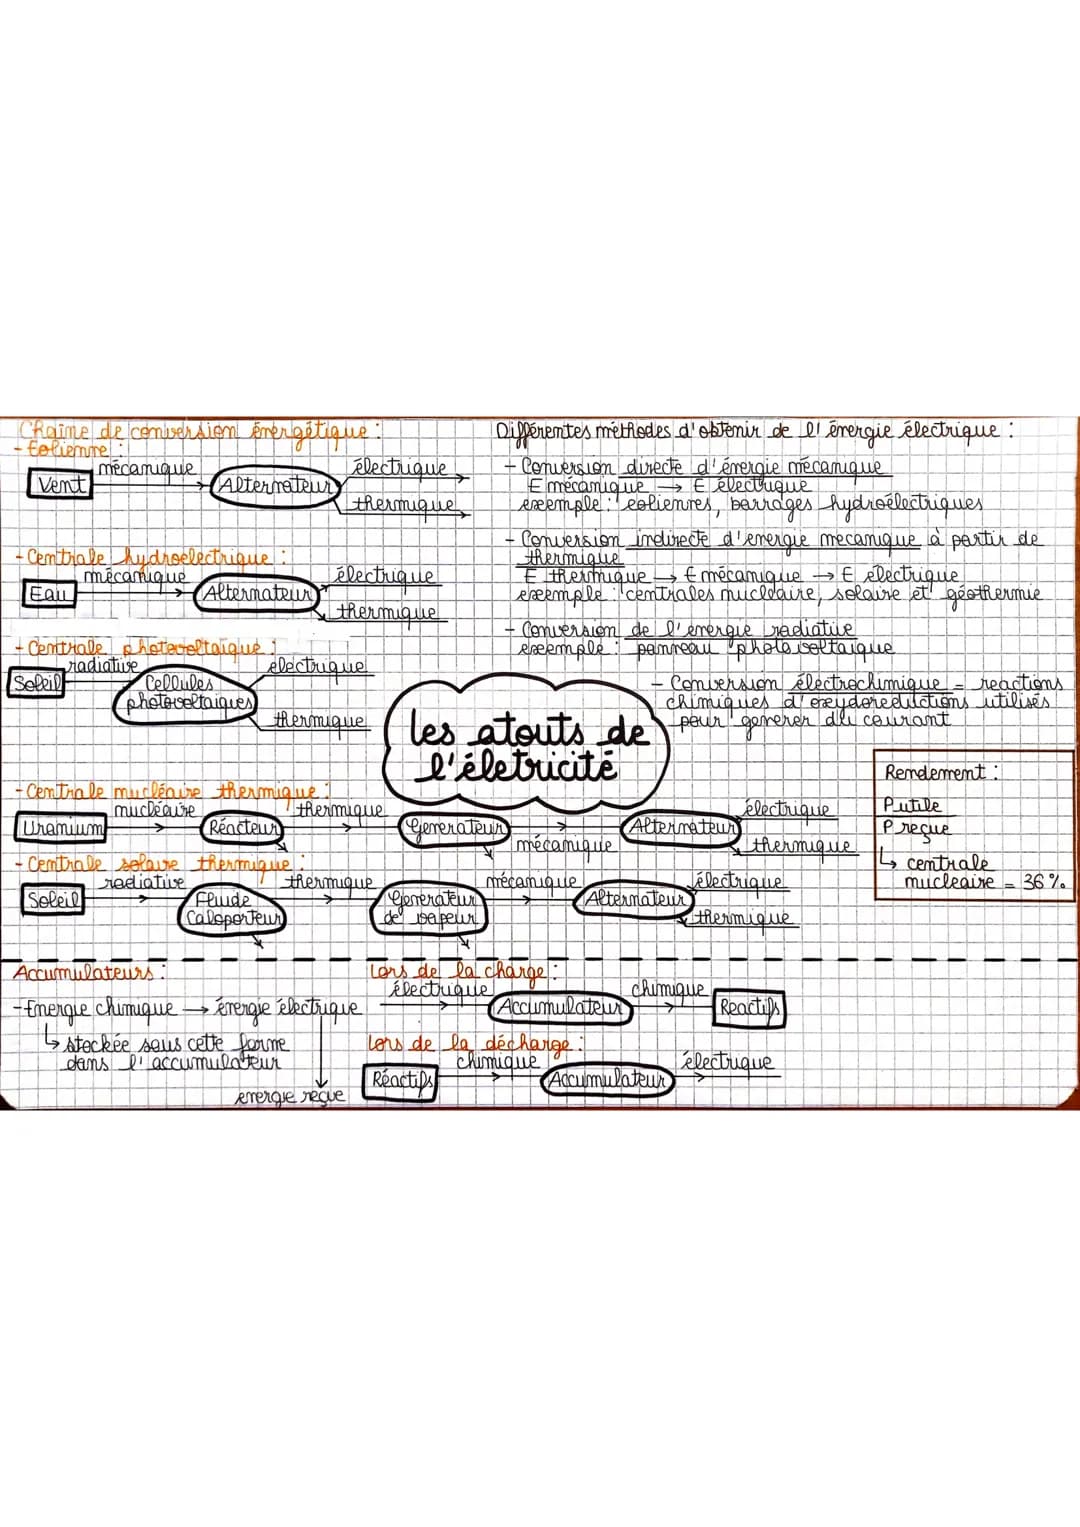 Chaîne de conversion énergétique :
- Eolienne :
Vent
mécanique
Alternateur
électrique
thermique
- Centrale hydroelectrique :
Eau
mécanique
Alternateur
électrique
thermique
- Centrale photovoltaïque :
Soleil
radiative
Cellules
photovoltaiques
electrique
thermique
- Centrale nucléaire thermique :
Uranium
nucléaire
Réacteur
thermique
Generateur
mécanique
Alternateur
électrique
thermique
- Centrale solaire thermique :
Soleil
radiative
Fluide
Caloporteur
thermique
Generateur
de vapeur
mécanique
Alternateur
électrique
thermique
Différentes méthodes d'obtenir de l'énergie électrique :
- Conversion directe d'énergie mécanique
E mécanique → E électrique
exemple : eoliennes, barrages hydroélectriques
- Conversion indirecte d'energie mecanique à partir de
thermique
E thermique → E mécanique → E électrique
exemple : centrales nucléaire, solaire et géothermie
- Conversion de l'énergie radiative
exemple : panneau photovoltaïque
- Conversion électrochimique = reactions
chimiques d'oxydoreductions utilisés
pour generer du courant
les atouts de
l'életricité
Rendement :
P utile
P reçue
↳ centrale
nucleaire = 36 %
Accumulateurs :
- Energie chimique → énergie électrique
↳ stockée sous cette forme
dans l'accumulateur
energie reçue
Lors de la charge :
électrique
Accumulateur
chimique
Reactifs
Lors de la décharge :
Réactifs
chimique
Accumulateur
électrique